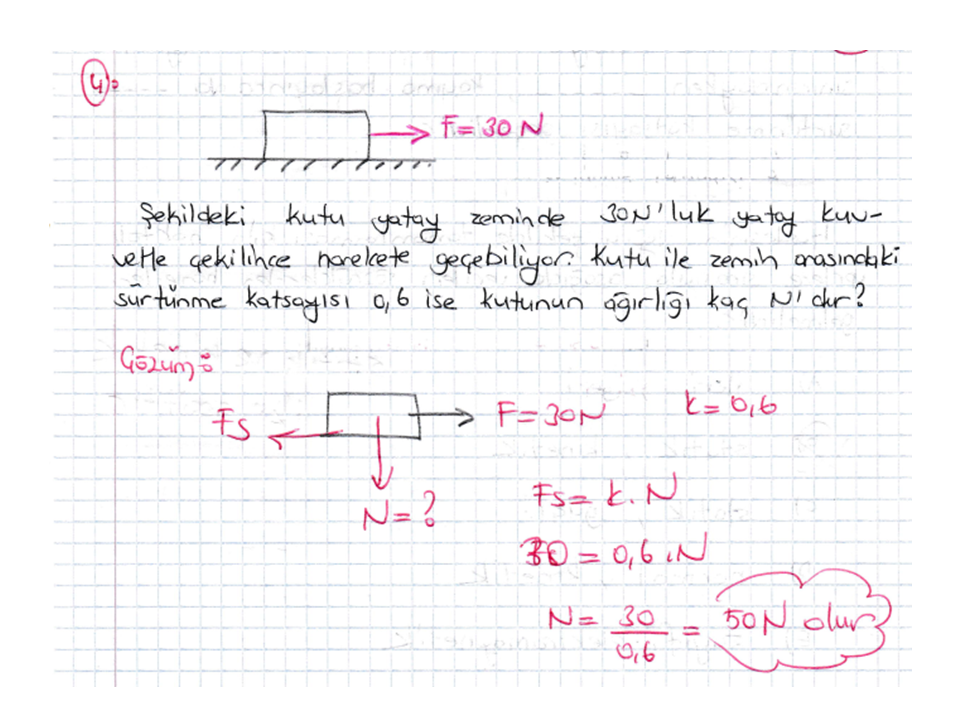 4:
F= 30 N
Şekildeki kutu yatay zeminde 30N'luk yatay kuv-
vetle çekilince harekete geçebiliyor. Kutu ile zemin arasındaki
sürtünme katsayısı 0,6 ise kutunun ağırlığı kaç N'dur?
Çözüm:
Fs
F=30N
k=0,6
N=?
Fs= k.N
30 = 0,6.N
N= 30/0,6 = 50N olur